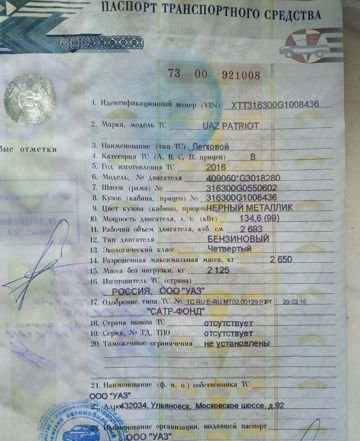 ПАСПОРТ ТРАНСПОРТНОГО СРЕДСТВА
73 00 921008
1. Идентификационный номер (VIN) XTT316300G1008436
2. Марка, модель ТС UAZ PATRIOT
3. Наименование (тип ТС) Легковой
бые отметки
4. Категория ТС (A, B, C, D, прицеп) B
5. Год изготовления ТС 2016
6. Модель, № двигателя 409060*G3018280
7. Шасси (рама) № 316300G0550602
8. Кузов (кабина, прицеп) № 316300G1008436
9. Цвет кузова (кабины, прицепа) ЧЕРНЫЙ МЕТАЛЛИК
10. Мощность двигателя, л. с. (кВт) 134,6 (99)
11. Рабочий объем двигателя, куб. см 2 693
12. Тип двигателя БЕНЗИНОВЫЙ
13. Экологический класс Четвертый
14. Разрешенная максимальная масса, кг 2 650
15. Масса без нагрузки, кг 2 125
16. Изготовитель ТС (страна)
РОССИЯ, ООО "УАЗ"
17. Одобрение типа ТС № ТС RU E-RU.MT02.00129.Р2 от 29.02.16
"САТР-ФОНД"
18. Страна вывоза ТС отсутствует
19. Серия, № ТД, ТПО отсутствует
20. Таможенные ограничения не установлены
21. Наименование (ф. и. о.) собственника ТС
ООО "УАЗ"
22. Адрес 432034, Ульяновск, Московское шоссе, д.92
23. Наименование организации, выдавшей паспорт
ООО "УАЗ"